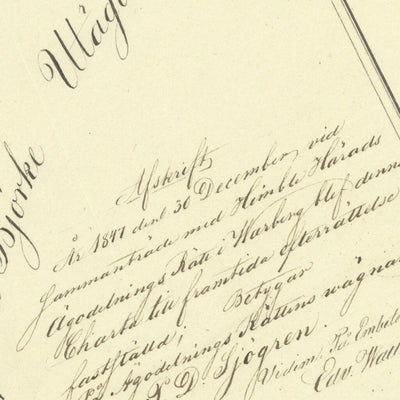 Utäg
Björke
Afskrift
År 1841 den 30 December, vid
Sammanträde med Himble Härads
Ägodelnings Rätt i Warberg blef denna
Charta till framtida efterrättelse
fastställd; Betygar
På Ägodelnings Rättens wägnar
D. Sjögren.
Vidim.
Edv. Wall